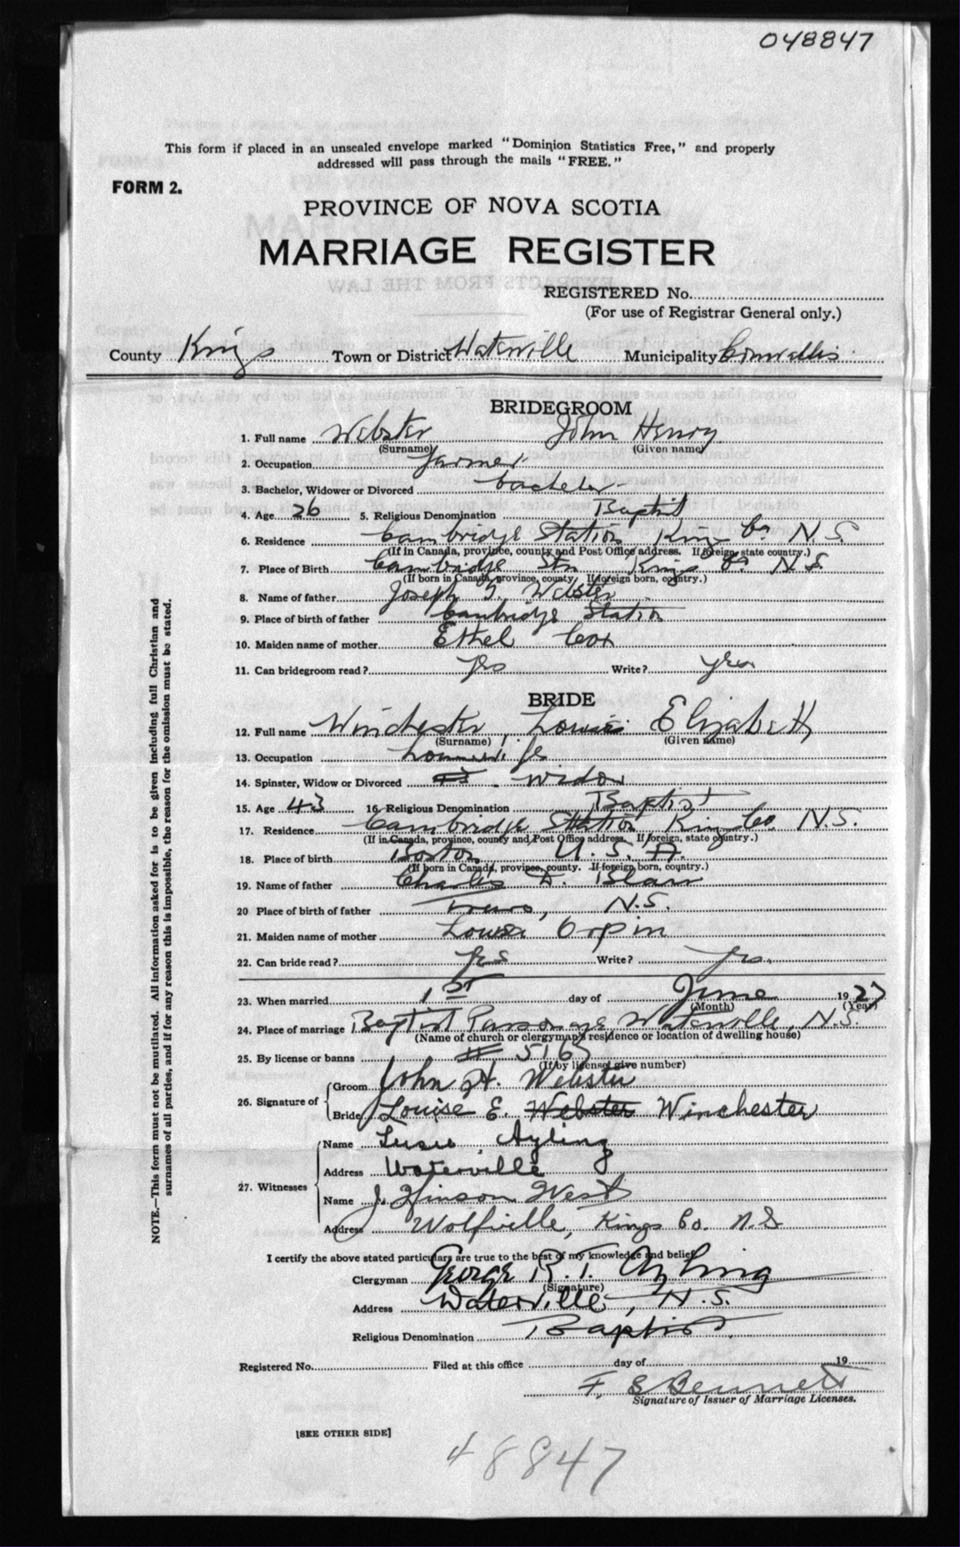 048847
This form if placed in an unsealed envelope marked "Dominion Statistics Free," and properly
addressed will pass through the mails "FREE."
FORM 2.
PROVINCE OF NOVA SCOTIA
MARRIAGE REGISTER
REGISTERED No.
(For use of Registrar General only.)
County Kings Town or District Waterville Municipality Cornwallis
BRIDEGROOM
1. Full name Webster John Henry
(Surname) (Given name)
2. Occupation farmer
3. Bachelor, Widower or Divorced bachelor
4. Age 26 5. Religious Denomination Baptist
6. Residence Cambridge Station Kings Co N.S.
(If in Canada, province, county and Post Office address. If foreign, state country.)
7. Place of Birth Cambridge Stn Kings Co N.S.
(If born in Canada, province, county. If foreign born, country.)
8. Name of father Joseph Webster
9. Place of birth of father Cambridge Station
10. Maiden name of mother Ethel Cox
11. Can bridegroom read? yes Write? yes
BRIDE
12. Full name Winchester, Louise Elizabeth
(Surname) (Given name)
13. Occupation
14. Spinster, Widow or Divorced 43 widow
15. Age 43 16 Religious Denomination Baptist
17. Residence Cambridge Station Kings Co. N.S.
(If in Canada, province, county and Post Office address. If foreign, state country.)
18. Place of birth Boston U.S.A.
(If born in Canada, province, county. If foreign born, country.)
19. Name of father Charles D. Blair
20 Place of birth of father Truro, N.S.
21. Maiden name of mother Louisa Orpin
22. Can bride read? yes Write? yes.
23. When married 1st day of June 1927
(Month) (Year)
24. Place of marriage Baptist Parsonage, Waterville, N.S.
(Name of church or clergyman's residence or location of dwelling house)
25. By license or banns # 5163
(If by license, give number)
26. Signature of
Groom John H. Webster
Bride Louise E. Webster Winchester
27. Witnesses
Name Susie Ayling
Address Waterville
Name J. Hinson West
Address Wolfville, Kings Co. N.S
I certify the above stated particulars are true to the best of my knowledge and belief
Clergyman George R. T. Ayling
(Signature)
Address Waterville, N.S.
Religious Denomination Baptist
Registered No. Filed at this office day of 19
F. E Bennett
Signature of Issuer of Marriage Licenses.
[SEE OTHER SIDE]
48847
NOTE.—This form must not be mutilated. All information asked for is to be given including full Christian and
surnames of all parties, and if for any reason this is impossible, the reason for the omission must be stated.